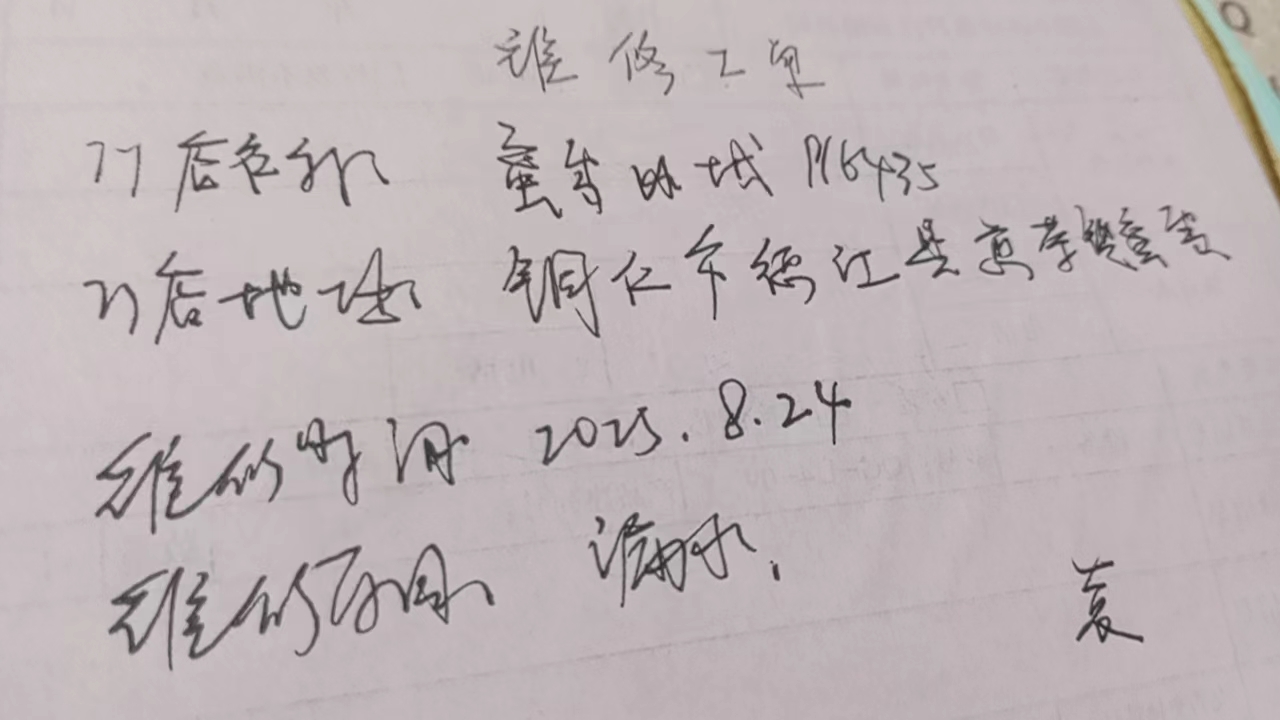 维修工单
门店名称 蜜雪冰城 P16435
门店地址 铜仁市德江县
维修时间 2025.8.24
维修原因 漏水.
袁